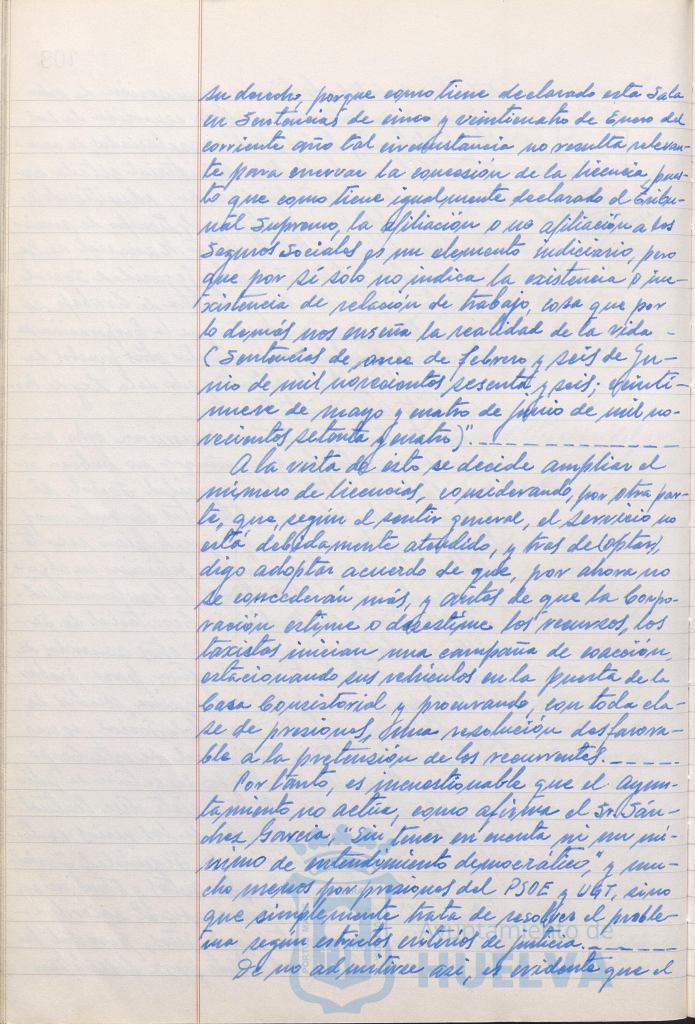 su derecho, porque como tiene declarado esta Sala
en Sentencias de cinco y veinticuatro de Enero del
corriente año tal circunstancia no resulta relevan-
te para enervar la concesión de la licencia, pues-
to que como tiene igualmente declarado el Tribu-
nal Supremo, la afiliación o no afiliación a los
Seguros Sociales es un elemento indiciario, pero
que por sí sólo no indica la existencia o ine-
xistencia de relación de trabajo, cosa que por
lo demás nos enseña la realidad de la vida -
(Sentencias de once de febrero y seis de Ju-
nio de mil novecientos sesenta y seis; veinti-
nueve de mayo y cuatro de junio de mil no-
vecientos setenta y cuatro)".
A la vista de ésto se decide ampliar el
número de licencias, considerando, por otra par-
te, que, según el sentir general, el servicio no
está debidamente atendido, y tras de (optar),
digo adoptar acuerdo de que, por ahora no
se concederán más, y antes de que la Corpo-
ración estime o desestime los recursos, los
taxistas inician una campaña de coacción,
estacionando sus vehículos en la puerta de la
Casa Consistorial y procurando, con toda cla-
se de presiones, una resolución desfavora-
ble a la pretensión de los recurrentes.
Por tanto, es incuestionable que el ayun-
tamiento no actúa, como afirma el Sr. Sán-
chez García, "Sin tener en cuenta ni un mí-
nimo de entendimiento democrático", y mu-
cho menos por presiones del PSOE y UGT, sino
que simplemente trata de resolver el proble-
ma según estrictos criterios de justicia.
De no admitirse así, es evidente que el
Ayuntamiento de
HUELVA